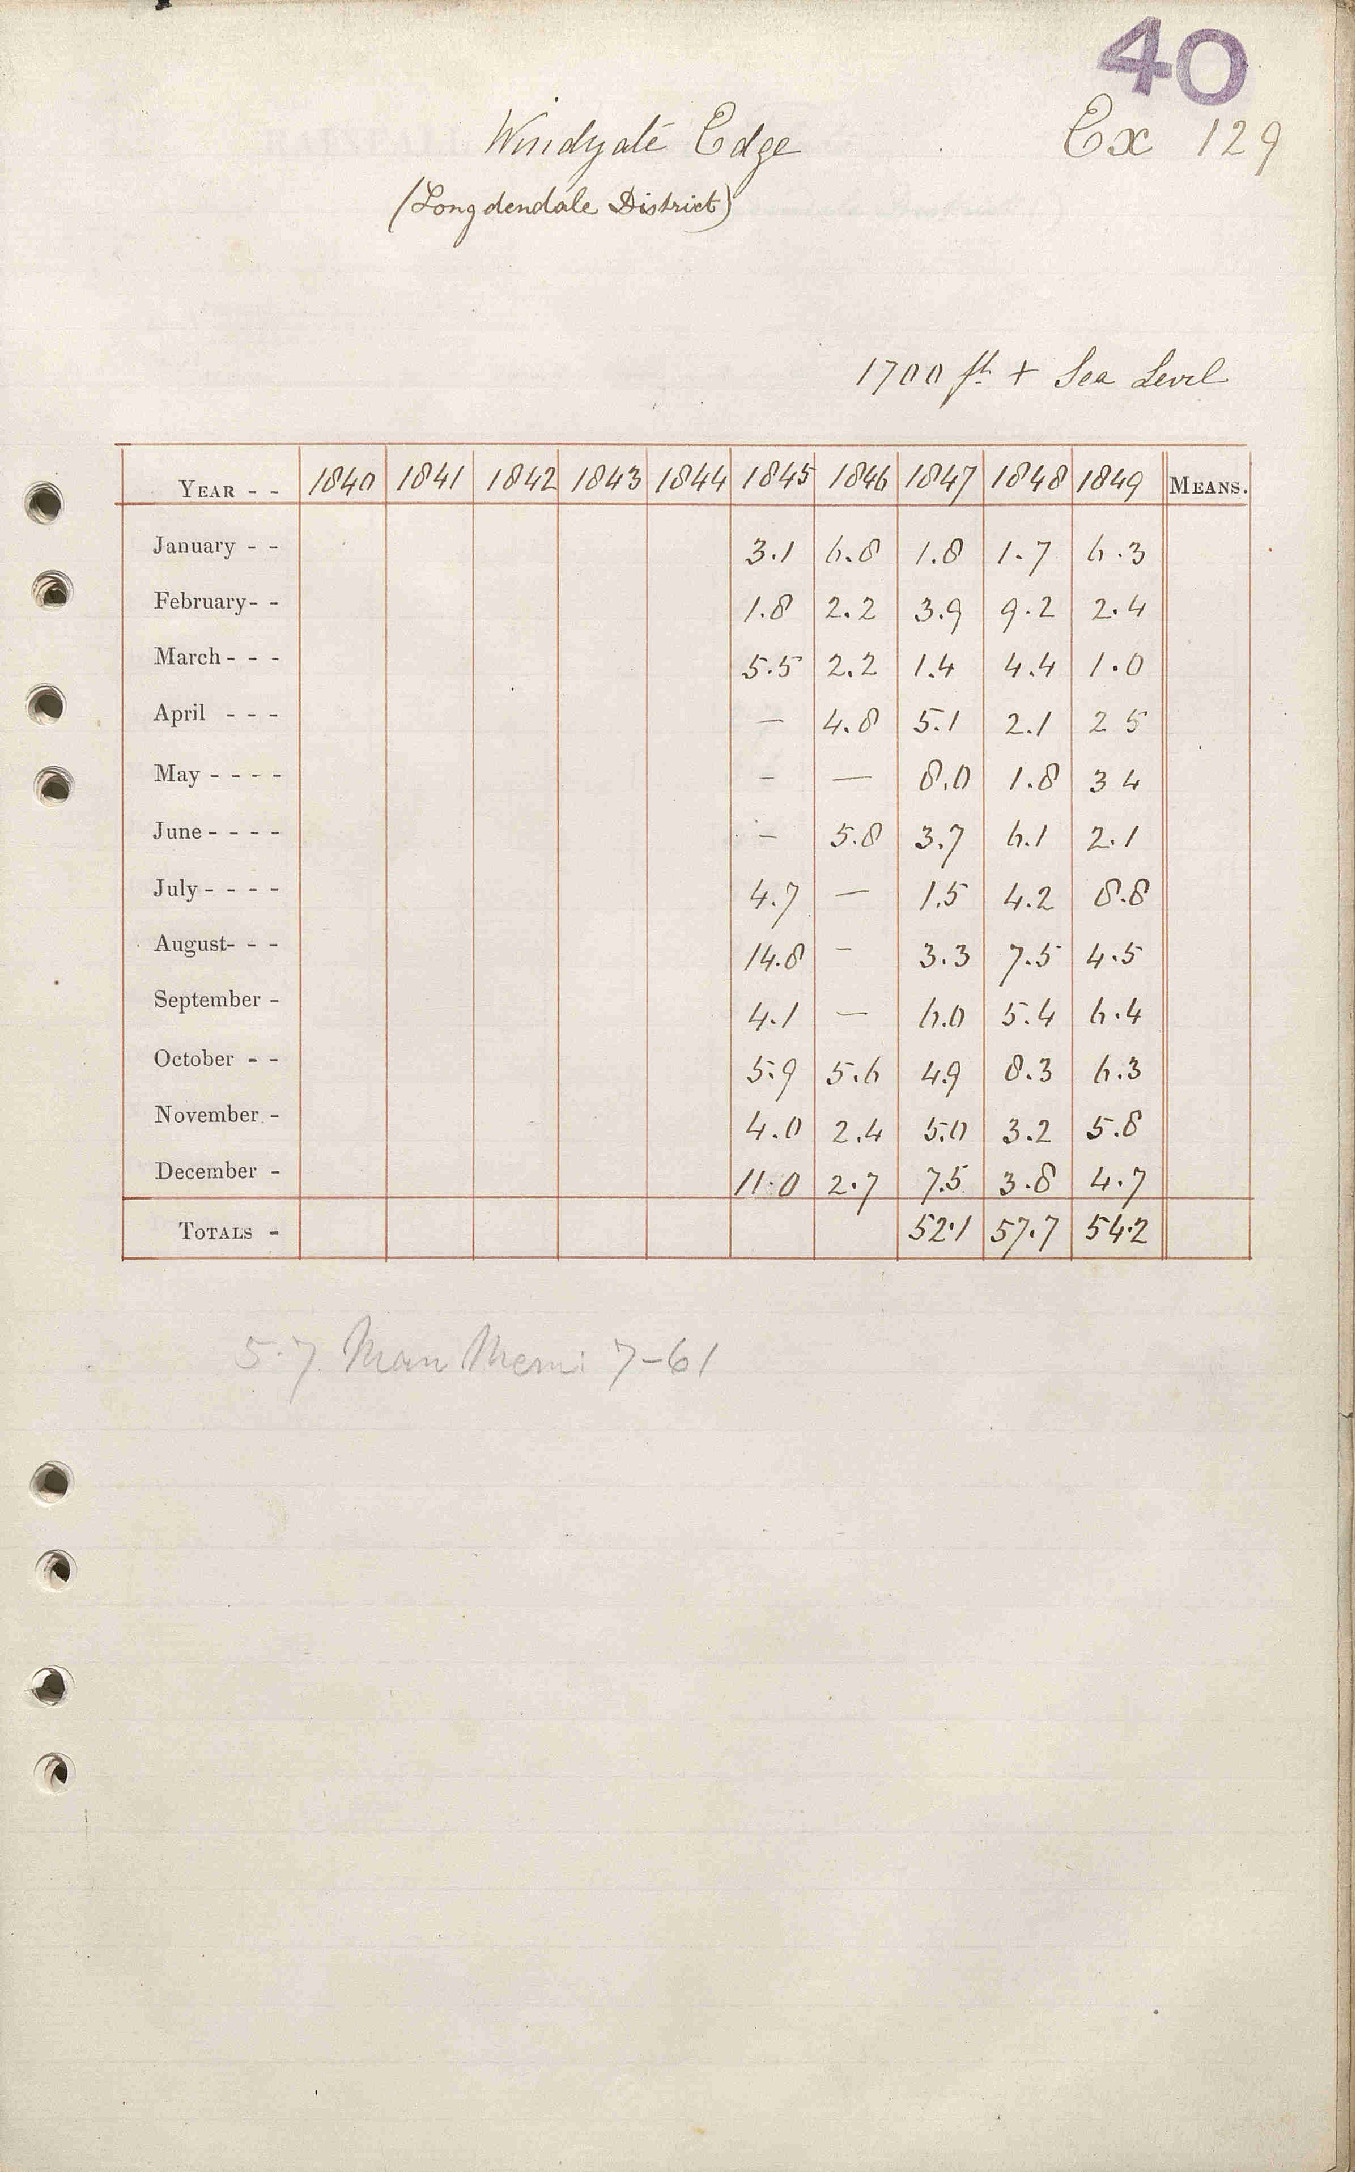 40
Windyate Edge
Ex 129
(Longdendale District)
1700 ft + Sea Level
YEAR - - 1840 1841 1842 1843 1844 1845 1846 1847 1848 1849 MEANS.
January - - 3.1 6.8 1.8 1.7 6.3
February - - 1.8 2.2 3.9 9.2 2.4
March - - - 5.5 2.2 1.4 4.4 1.0
April - - - — 4.8 5.1 2.1 2 5
May - - - - - — 8.0 1.8 3 4
June - - - - — 5.8 3.7 6.1 2.1
July - - - - 4.7 — 1.5 4.2 8.8
August- - - 14.8 - 3.3 7.5 4.5
September - 4.1 — 6.0 5.4 6.4
October - - 5.9 5.6 4.9 8.3 6.3
November - 4.0 2.4 5.0 3.2 5.8
December - 11.0 2.7 7.5 3.8 4.7
TOTALS - 52.1 57.7 54.2
5.7. Man Mem: 7-61